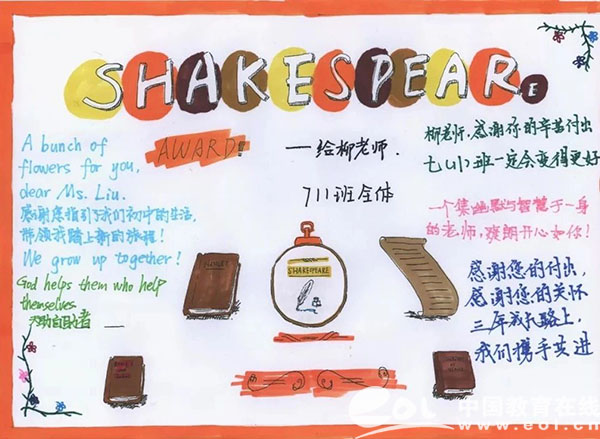 SHAKESPEARE
AWARD!
A bunch of
flowers for you,
dear Ms. Liu.
感谢您指引我们初中的生活,
带领我踏上新的旅程!
We grow up together!
God helps them who help
themselves
天助自助者
—给柳老师.
711班全体
柳老师,感谢你的辛苦付出
七(11)班一定会变得更好
一个集幽默与智慧于一身
的老师,爽朗开心如你!
感谢您的付出,
感谢您的关怀
三年成长路上,
我们携手共进
SHAKESPEARE
eol 中国教育在线
www.eol.cn